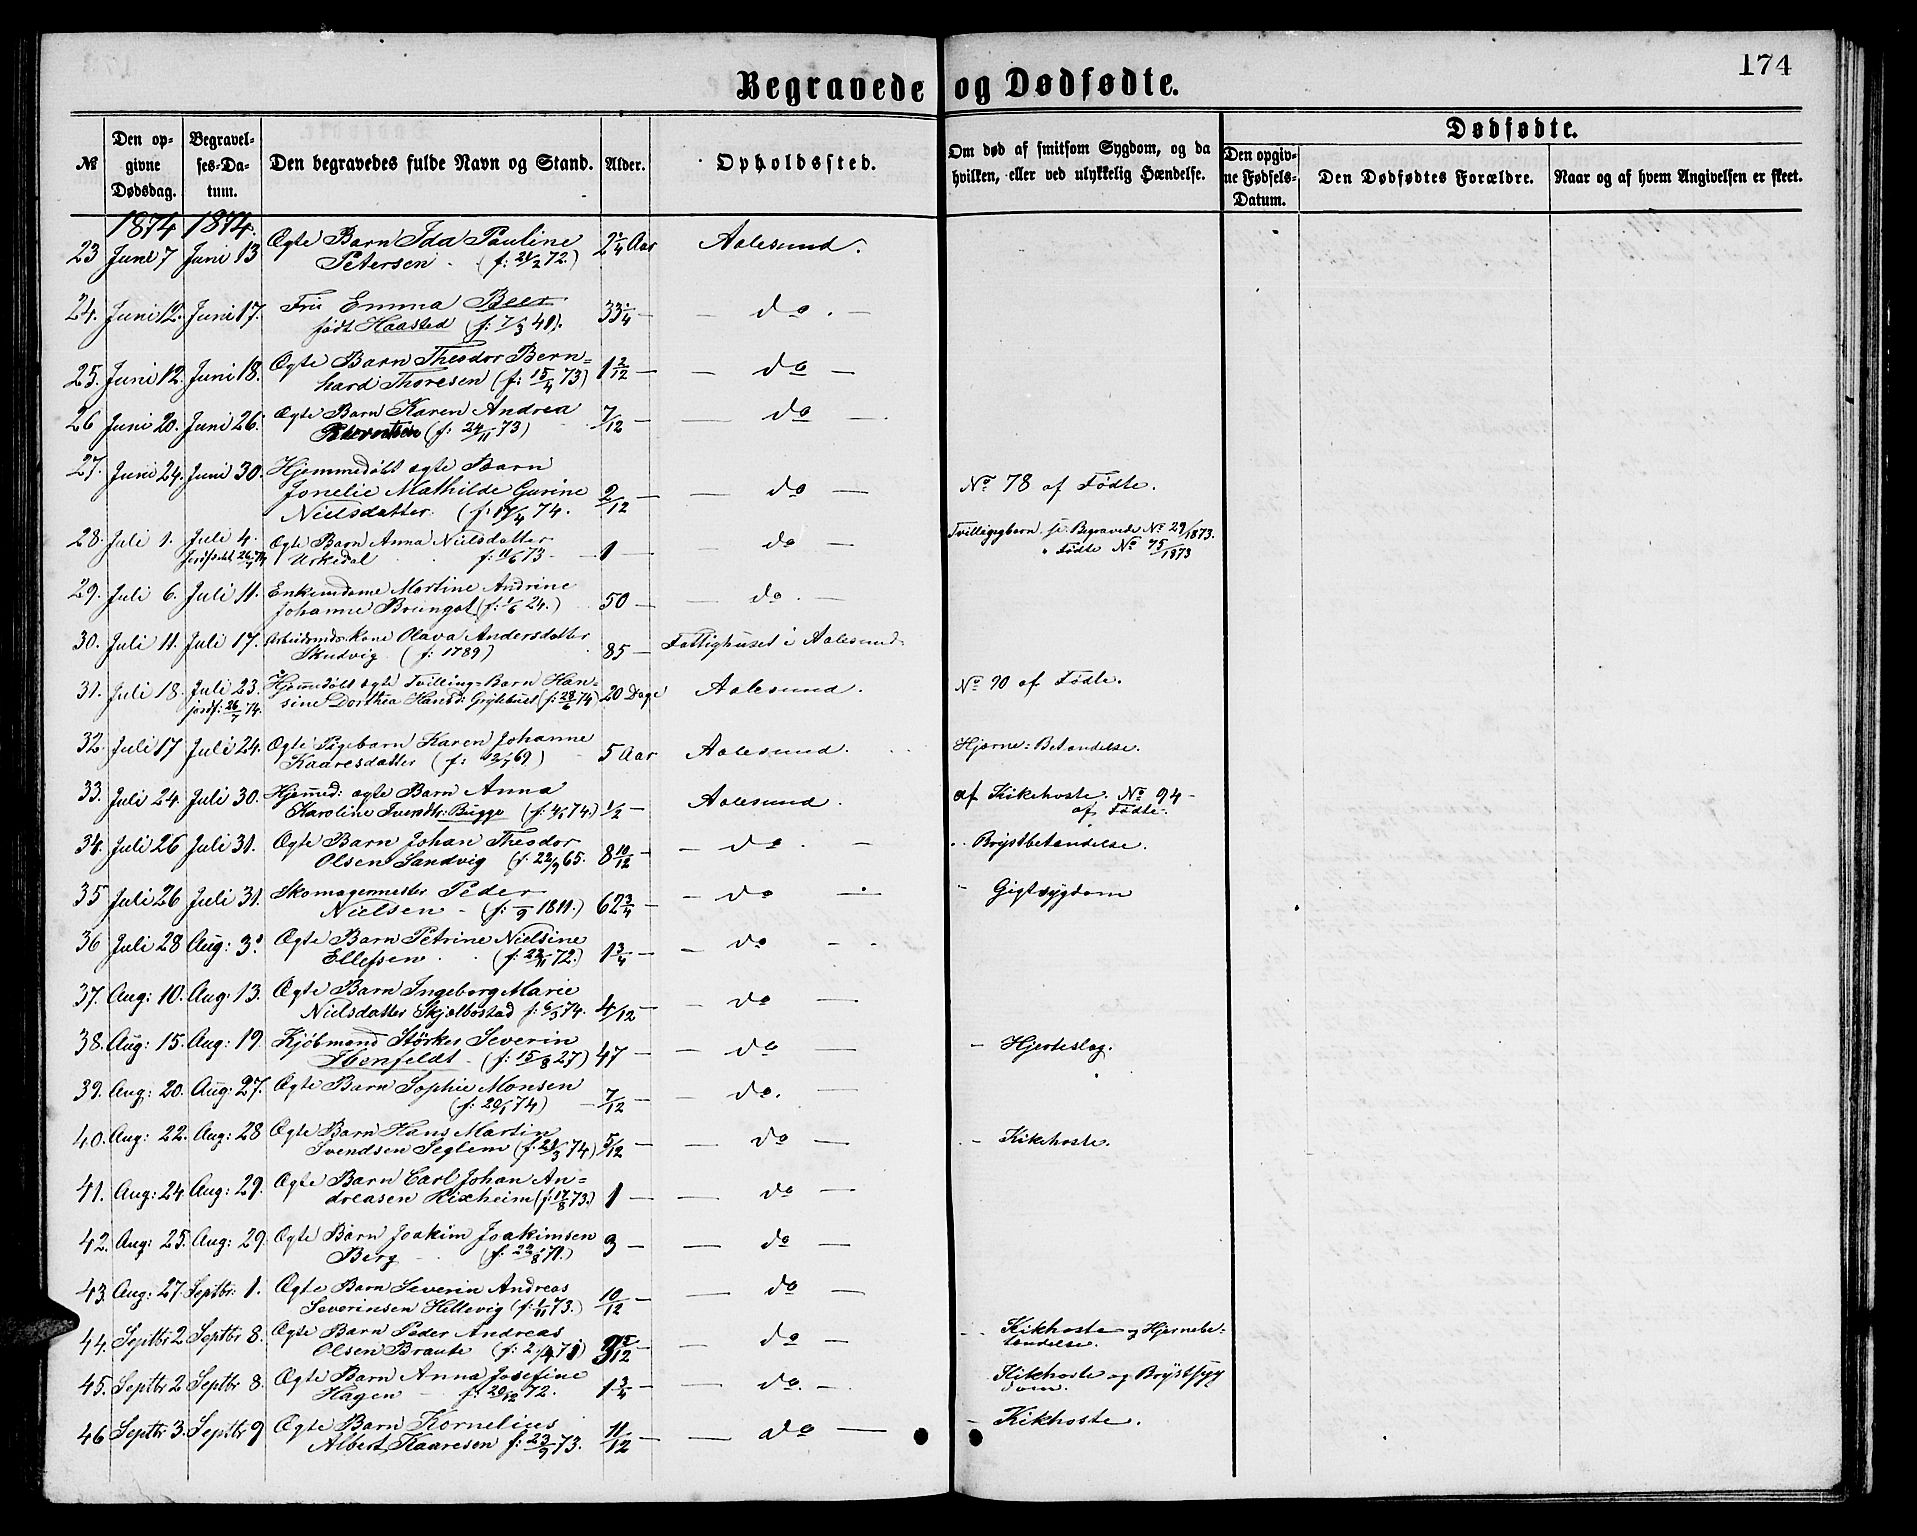 174
Begravede og Dødfødte.
№ Den opgivne Dødsdag. Begravelses-Datum. Den begravedes fulde Navn og Stand. Alder. Opholdssted. Om død af smitsom Sygdom, og da hvilken, eller ved ulykkelig Hændelse. Dødfødte. Den opgivne Fødsels-Datum. Den Dødfødtes Forældre. Naar og af hvem Angivelsen er skeet.
1874 1874.
23 Juni 7 Juni 13 Ægte Barn Ida Pauline 2 1/4 Aar Aalesund.
Petersen (f: 21/2 72.)
24. Juni 12. Juni 17. Fru Emma Beer 33 1/4 — — do. —
født Haasted (f: 7/3 41).
25. Juni 12. Juni 18. Ægte Barn Theodor Bern= 1 2/12 — — do —
hard Thoresen (f: 15/4 73)
26 Juni 20. Juni 26. Ægte Barn Karen Andrea 7/12 — — do —
(f: 24/11 73)
27. Juni 24. Juni 30. Hjemmedøbt ægte Barn
Jonelie Mathilde Gurine 2/12 — — do — No 78 af Fødte.
Nielsdatter. (f: 17/4 74.
28. Juli 1. Juli 4. Ægte Barn Anna Nielsdatter — do — Tvillingbarn se Begravede No 29/1873.
Urkedal f: 11/6 73 — 1 — " Fødte No 75/1873
29. Juli 6. Juli 11. Enkemadame Martine Andrine 50 — — do. —
Johanne Brungot (f: 1/6 24.)
30. Juli 11. Juli 17. Arbeidsmds. Kone Olava Andersdatter 85 — Fattighuset i Aalesund.
Skudvig. (f: 1789)
31. Juli 18. Juli 23. Hjemmedøbt ægte Tvilling=Barn Han= 20 Dage Aalesund. No 90 af Fødte.
jordf: 26/7 74. sine Dorthea Hansd: Grytehuset (f: 28/6 74)
32. Juli 17 Juli 24. Ægte Pigebarn Karen Johanne 5 Aar Aalesund. Hjerne=Betændelse.
Kaaresdatter (f: 12/1 69)
33. Juli 24. Juli 30. Hjemmed: ægte Barn Anna 1/2 — Aalesund. af Kikehoste. No 94
Karoline Svendtr: Bugge (f: 74.) af Fødte.
34. Juli 26 Juli 31. Ægte Barn Johan Theodor 8 10/12 — — do. — Brystbetændelse.
Olsen Sandvig (f. 22/9 65.
35 Juli 26 Juli 31. Skomagermester Peder 62 3/4 — — do — Gigtsygdom
Nielsen (f: /9 1811.)
36 Juli 28 Aug: 3. Ægte Barn Petrine Nielsine 1 3/4 — — do —
Ellefsen (f: 22/11 72.)
37. Aug: 10. Aug: 13. Ægte Barn Ingeborg Marie 4/12 — — do —
Nielsdatter Skjelbostad f: 6/3 74.
38. Aug: 15. Aug: 19. Kjøbmand Størker Severin 47 — — do — — Hjerteslag.
Ibenfeldt (f: 15/8 27)
39. Aug: 20. Aug: 27. Ægte Barn Sophie Monsen 7/12 — — do. —
(f: 20/1 74)
40. Aug: 22. Aug: 28 Ægte Barn Hans Martin 5/12 — — do — — Kikehoste.
Svendsen Seglem (f: 21/3 74)
41. Aug: 24 Aug: 29. Ægte Barn Carl Johan An= 1 — — do —
dreasen Rixheim (f: 17/8 73.)
42. Aug: 25. Aug: 29. Ægte Barn Joakim Joakimsen 3 — — do —
Berg (f: 22/8 71.)
43. Aug: 27. Septbr: 1. Ægte Barn Severin Andreas 10/12 — — do —
Severinsen Hellevig (f: 1/11 73.)
44. Septbr 2 Septbr 8. Ægte Barn Peder Andreas 3 5/12 — — do — — Kikhoste og Hjernebe=
Olsen Braute (f: 2/4 71) tændelse.
45. Septbr 2 Septbr 8. Ægte Barn Anna Josefine 1 3/4 — — do. — Kikhoste og Brystsyg
Hagen f: 20/12 72. dom.
46 Septbr 3. Septbr 9 Ægte Barn Kornelius 11/12 — — do — — Kikhoste.
Albert Kaaresen f: 23/9 73.